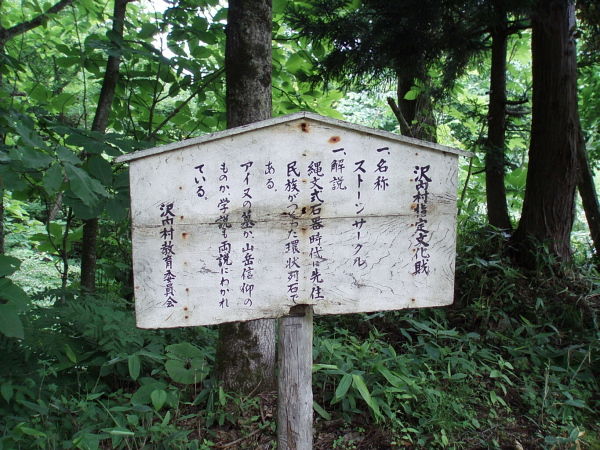 沢内村指定文化財
一、名称
ストーンサークル
一、解説
縄文式石器時代に先住
民族がつくった環状列石で
ある。
アイヌの墓か、山岳信仰の
ものか、学説も両説にわかれ
ている。
沢内村教育委員会